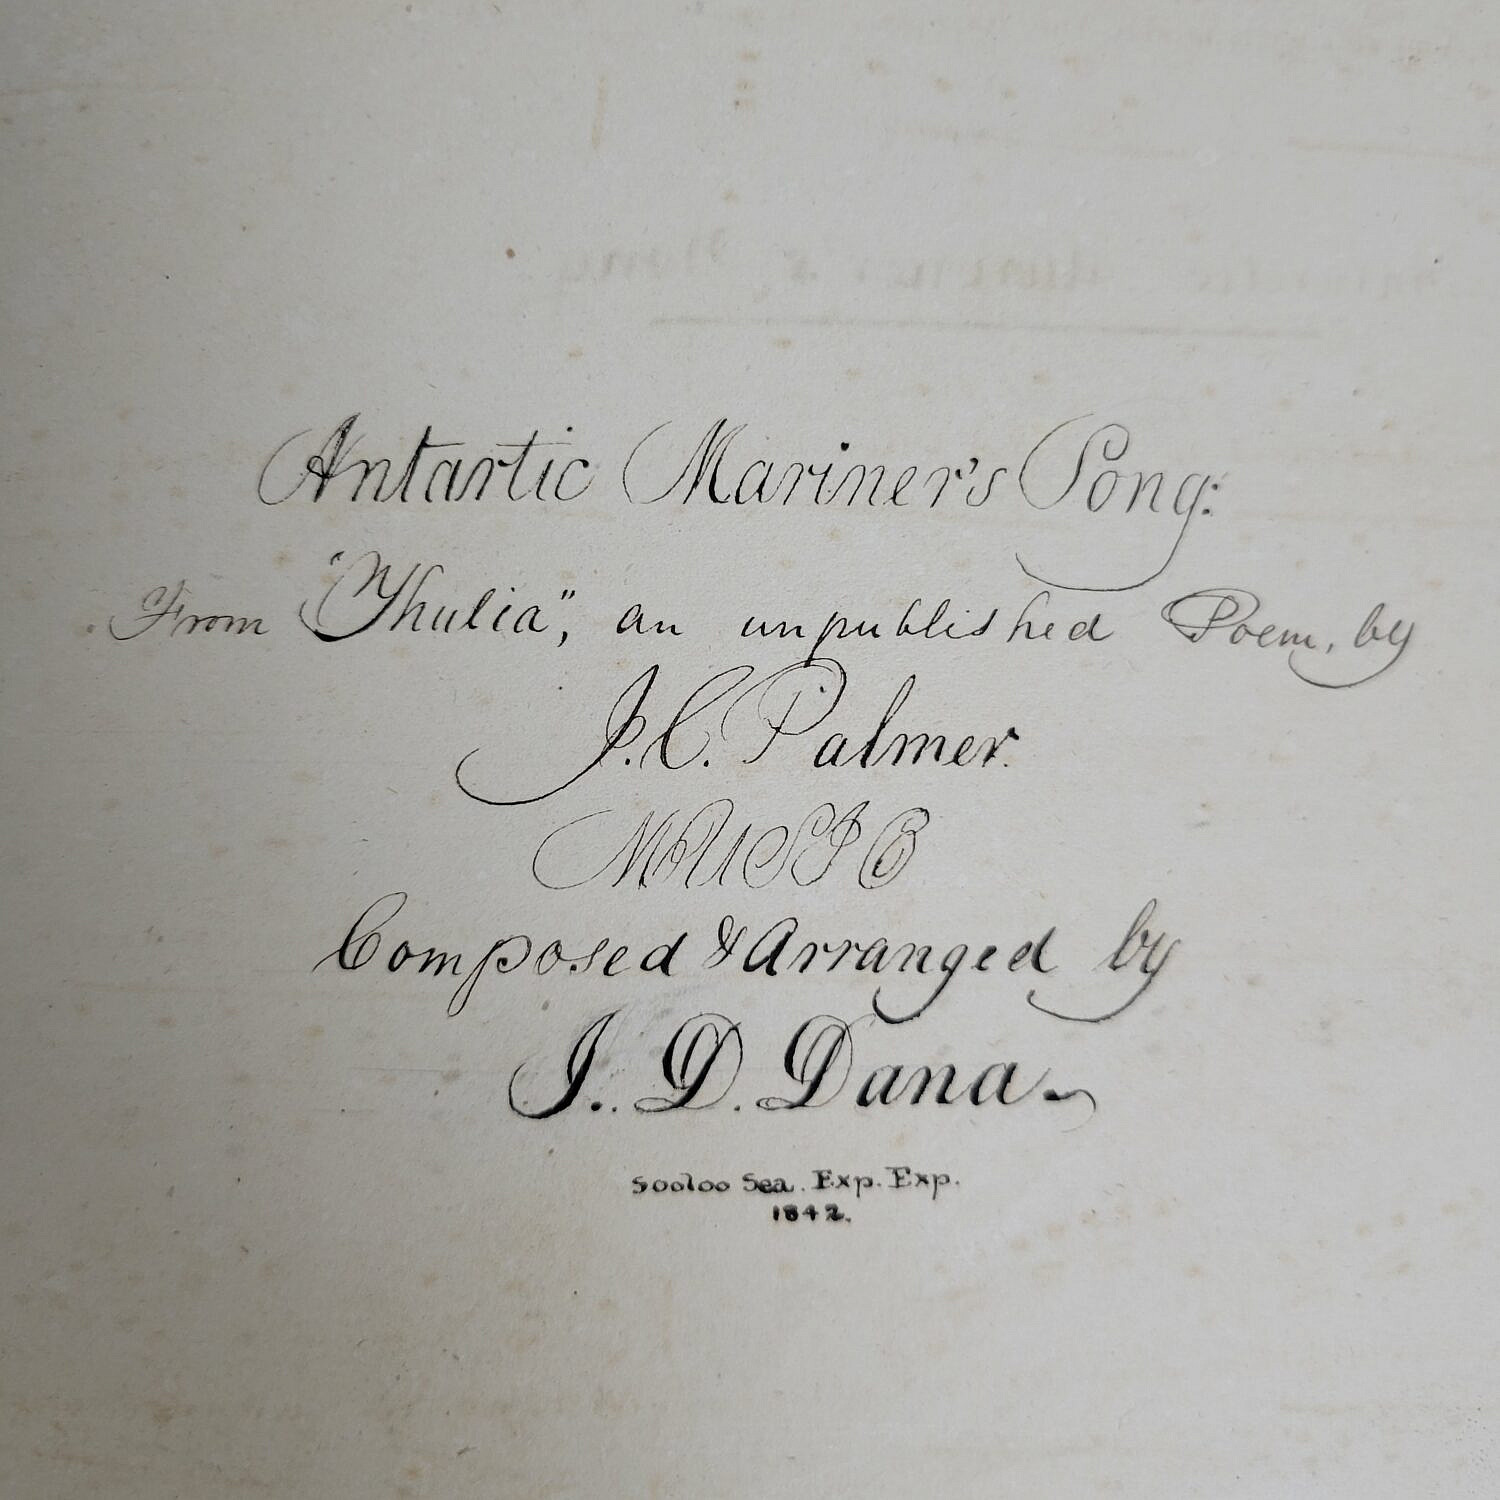 Antartic Mariner's Song:
From "Thulia", an unpublished Poem, by
J. C. Palmer.
MUSIC
Composed & Arranged by
J. D. Dana
Sooloo Sea. Exp. Exp.
1842.